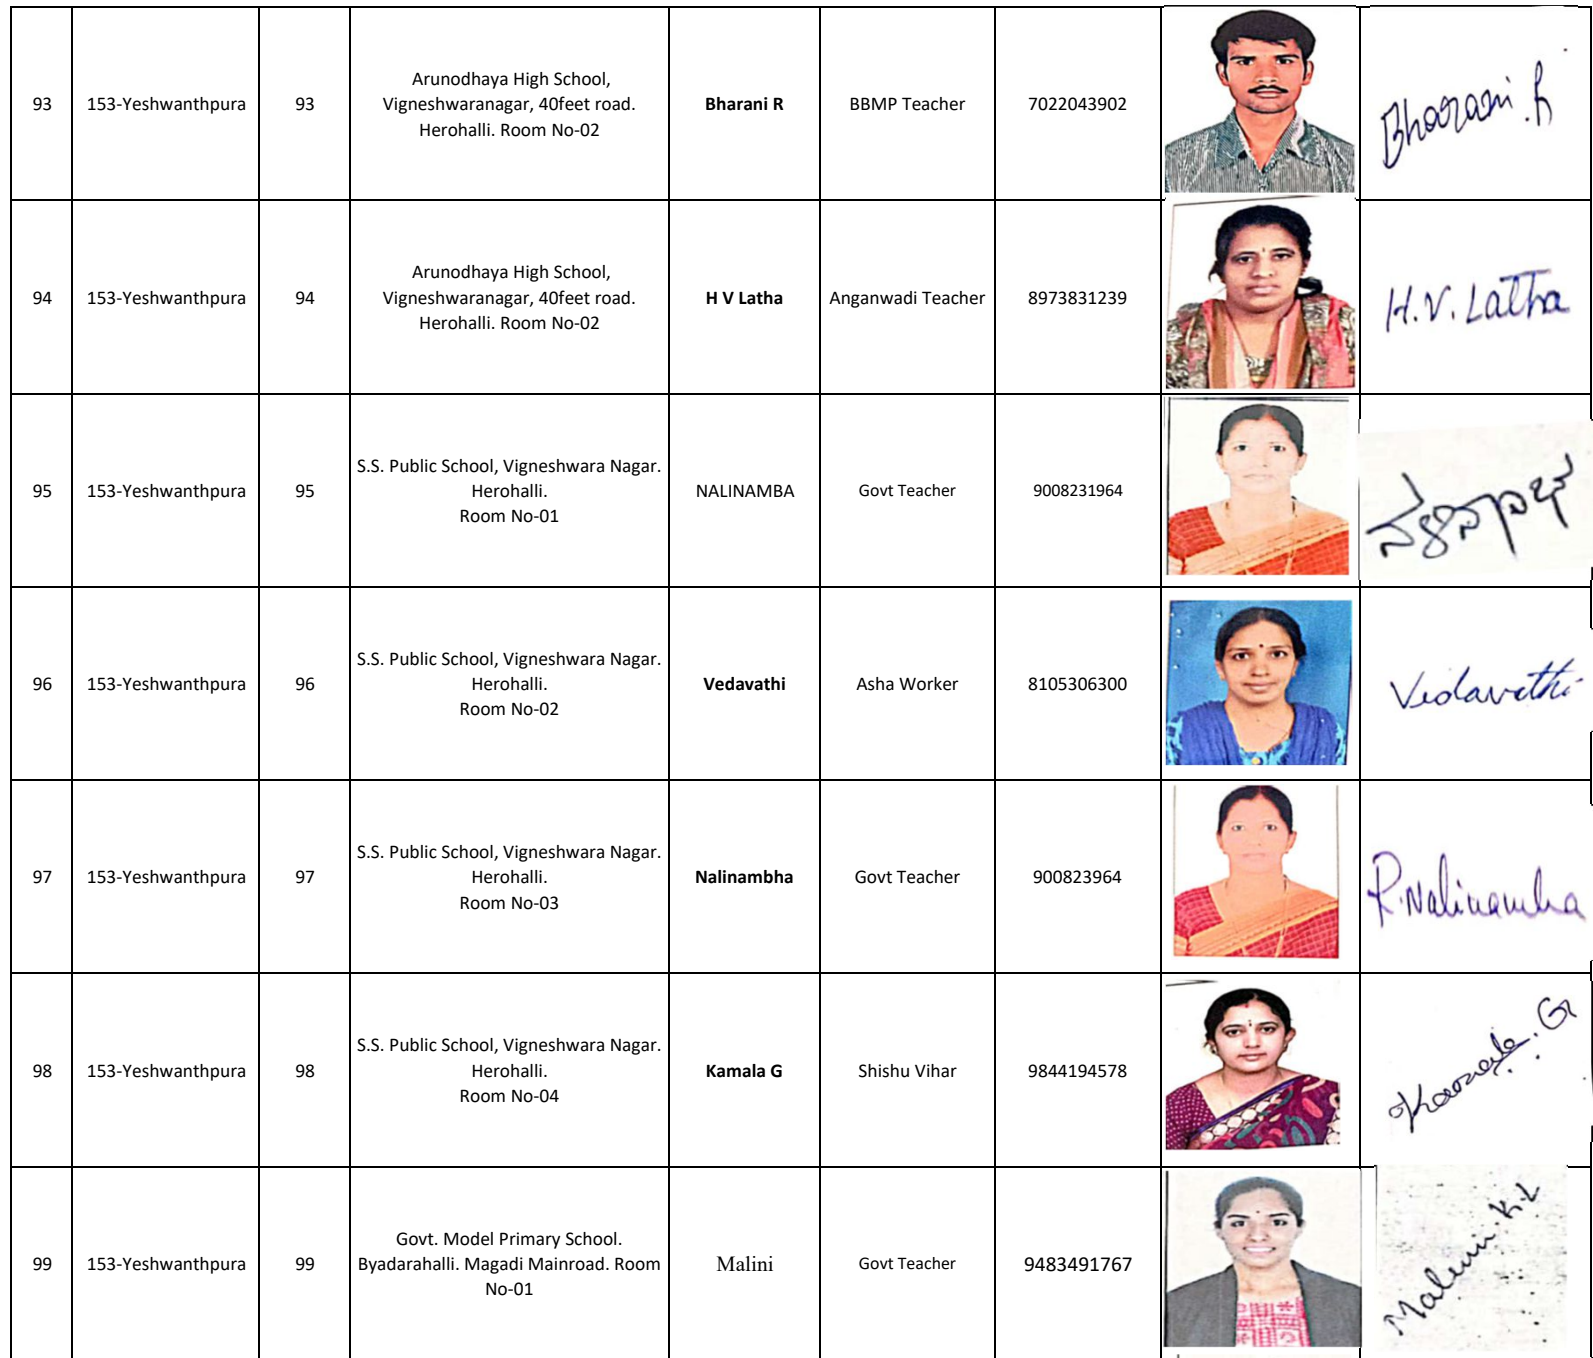 93 153-Yeshwanthpura 93 Arunodhaya High School,
Vigneshwaranagar, 40feet road.
Herohalli. Room No-02 Bharani R BBMP Teacher 7022043902 Bharani.R
94 153-Yeshwanthpura 94 Arunodhaya High School,
Vigneshwaranagar, 40feet road.
Herohalli. Room No-02 H V Latha Anganwadi Teacher 8973831239 H.V. Latha
95 153-Yeshwanthpura 95 S.S. Public School, Vigneshwara Nagar.
Herohalli.
Room No-01 NALINAMBA Govt Teacher 9008231964
96 153-Yeshwanthpura 96 S.S. Public School, Vigneshwara Nagar.
Herohalli.
Room No-02 Vedavathi Asha Worker 8105306300 Vedavathi
97 153-Yeshwanthpura 97 S.S. Public School, Vigneshwara Nagar.
Herohalli.
Room No-03 Nalinambha Govt Teacher 900823964 R.Nalinamba
98 153-Yeshwanthpura 98 S.S. Public School, Vigneshwara Nagar.
Herohalli.
Room No-04 Kamala G Shishu Vihar 9844194578 Kamala.G
99 153-Yeshwanthpura 99 Govt. Model Primary School.
Byadarahalli. Magadi Mainroad. Room
No-01 Malini Govt Teacher 9483491767 Malini.K.L